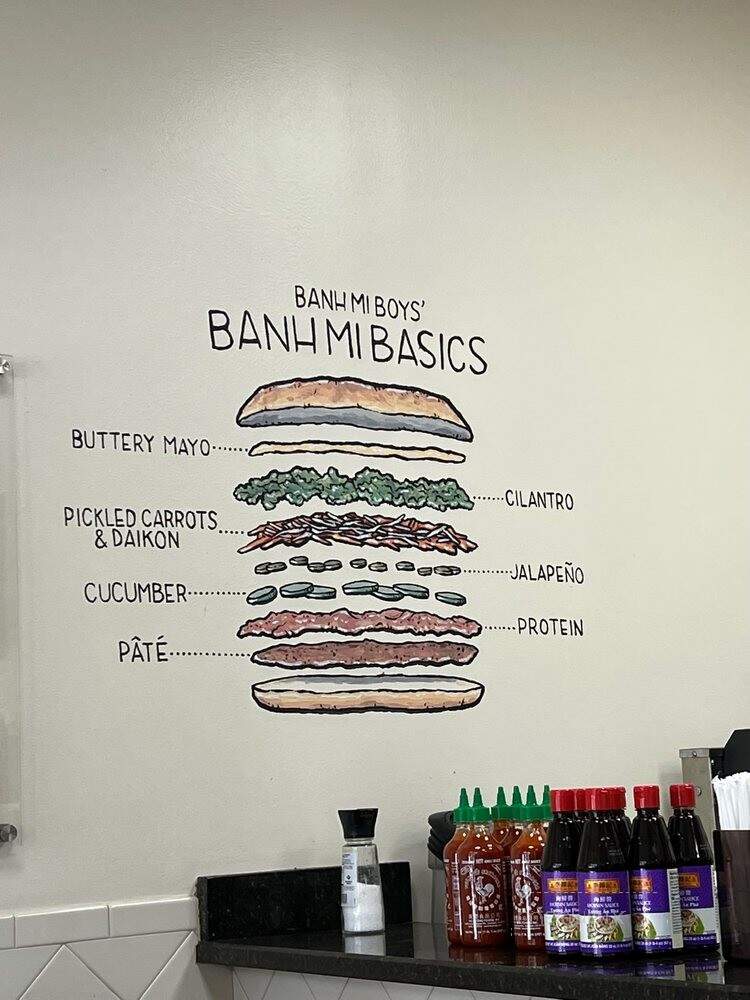 BANH MI BOYS'
BANH MI BASICS
BUTTERY MAYO
CILANTRO
PICKLED CARROTS
& DAIKON
JALAPEÑO
CUCUMBER
PROTEIN
PÂTÉ
李錦記
海鮮醬
HOISIN SAUCE
Tương Ăn Phở